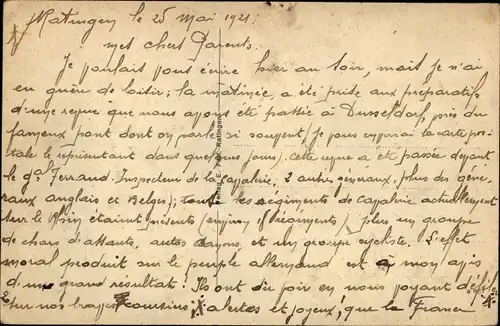 Ratingen le 25 Mai 1921.
mes chers Parents.
Je voulais vous écrire hier au soir, mais je n'ai
eu guère de loisir; la matinée, a été prise aux préparatifs
d'une revue que nous avons été passée à Dusseldorf près du
fameux pont dont on parle si souvent, Je vous enverrai la carte pos-
tale le représentant dans quelques jours), cette revue a été passée devant
le gal Ferrand. Inspecteur de la Cavalerie, 2 autres généraux, plus des géné-
raux anglais et Belges); tous les régiments de cavalerie actuellement
sur le Rhin étaient présents (environ régiments) plus un groupe
de chars d'assauts, autos canons et un groupe cycliste. L'effet
moral produit sur le peuple allemand est à mon avis
d'un grand résultat: Ils ont du voir en nous voyant défiler
sur nos braves coursiers, alertes et joyeux, que la France
Verlag E. Ratingen